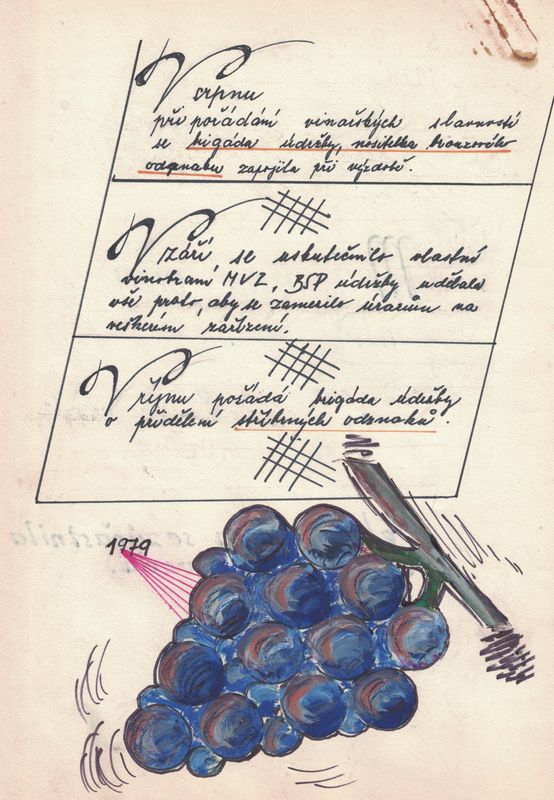 V srpnu
při pořádání vinařských slavností
se brigáda údržby, nositelka bronzového
odznaku zapojila při výzdobě.
V září se uskutečnilo vlastní
vinobraní MVZ, BSP údržby udělala
vše proto, aby se zamezilo úrazům na
veškerém zařízení.
V říjnu požádá brigáda údržby
o přidělení stříbrných odznaků.
1979